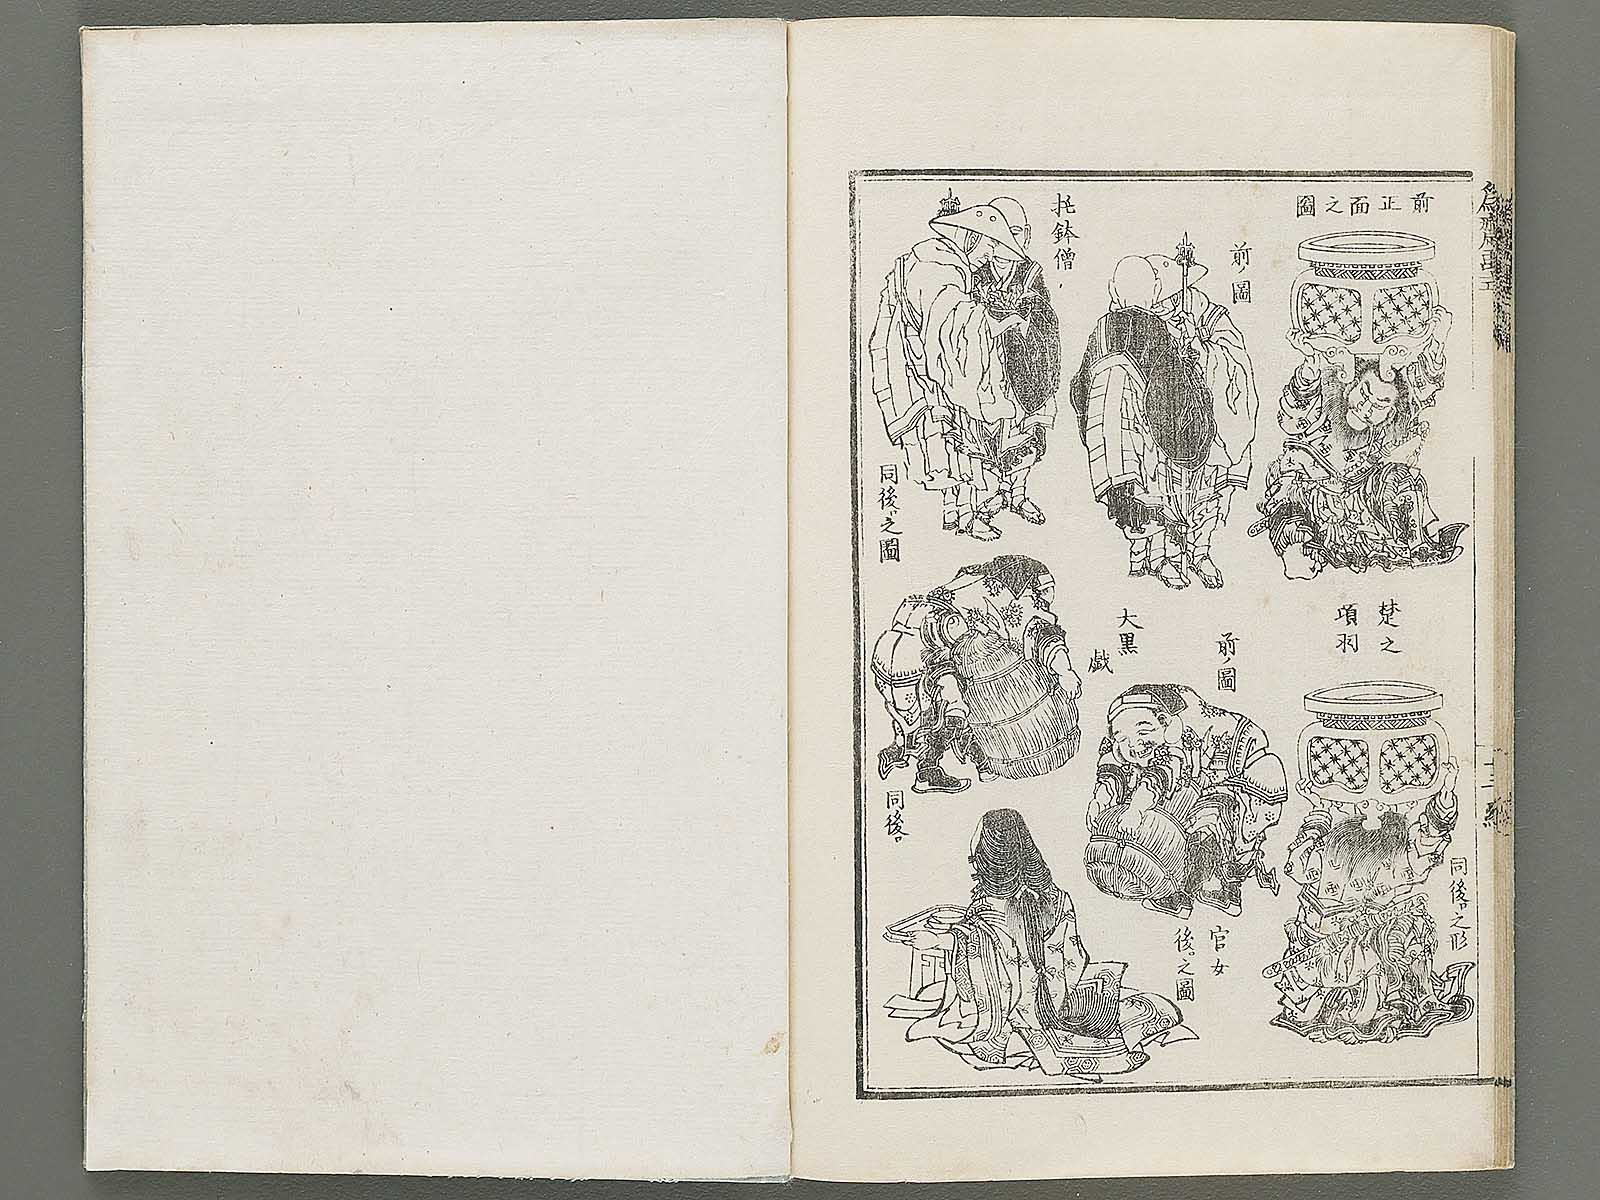 前正面之圖
楚之
項羽
同後ロ之形
前ノ圖
托鉢僧
同後ロ之圖
前ノ圖
大黒
戯
同後ロ
官女
後ロ之圖